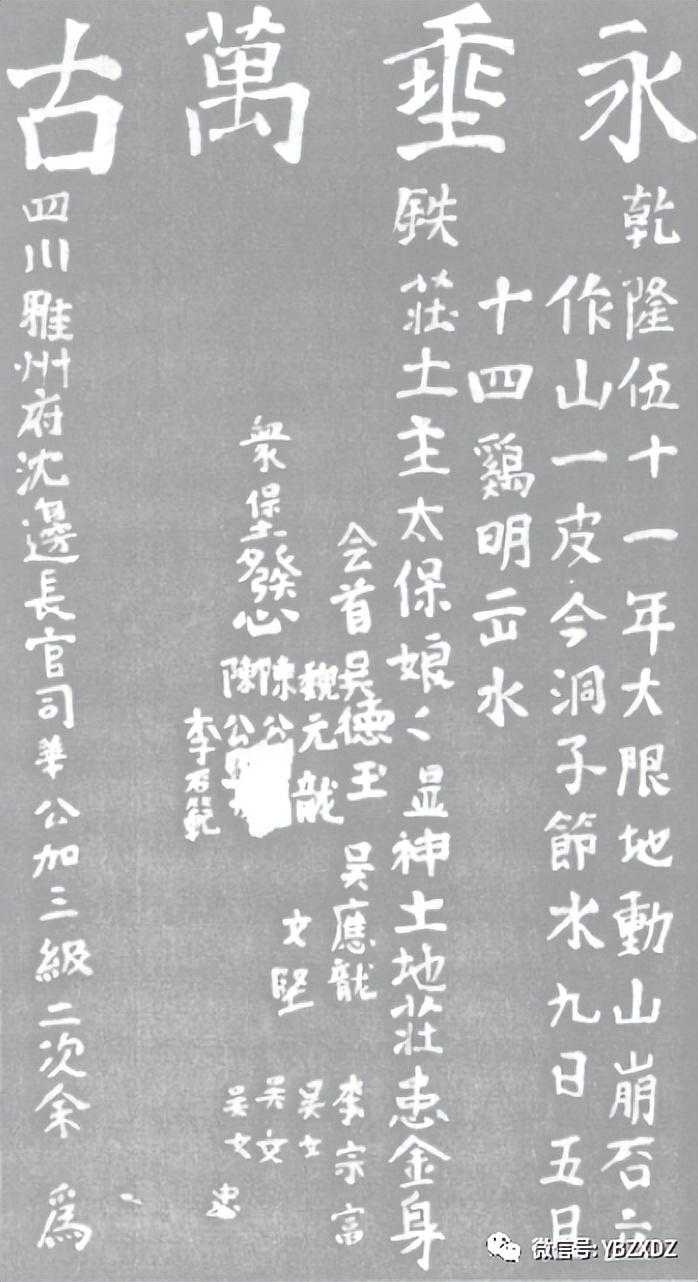 永垂萬古
乾隆伍十一年大限地動山崩石
作山一皮今洞子節水九日五月
十四鷄明出水
鉄莊土主太保娘〻显神土地莊金身
会首吳德玉 吳應龍 李宗富
魏元龍 文堅 吳文
陳公 吳文
陳公 吳文
衆堡發心
李石範
忠
四川雅州府沈邊長官司華公加三級二次余 為
微信号: YBZXDZ